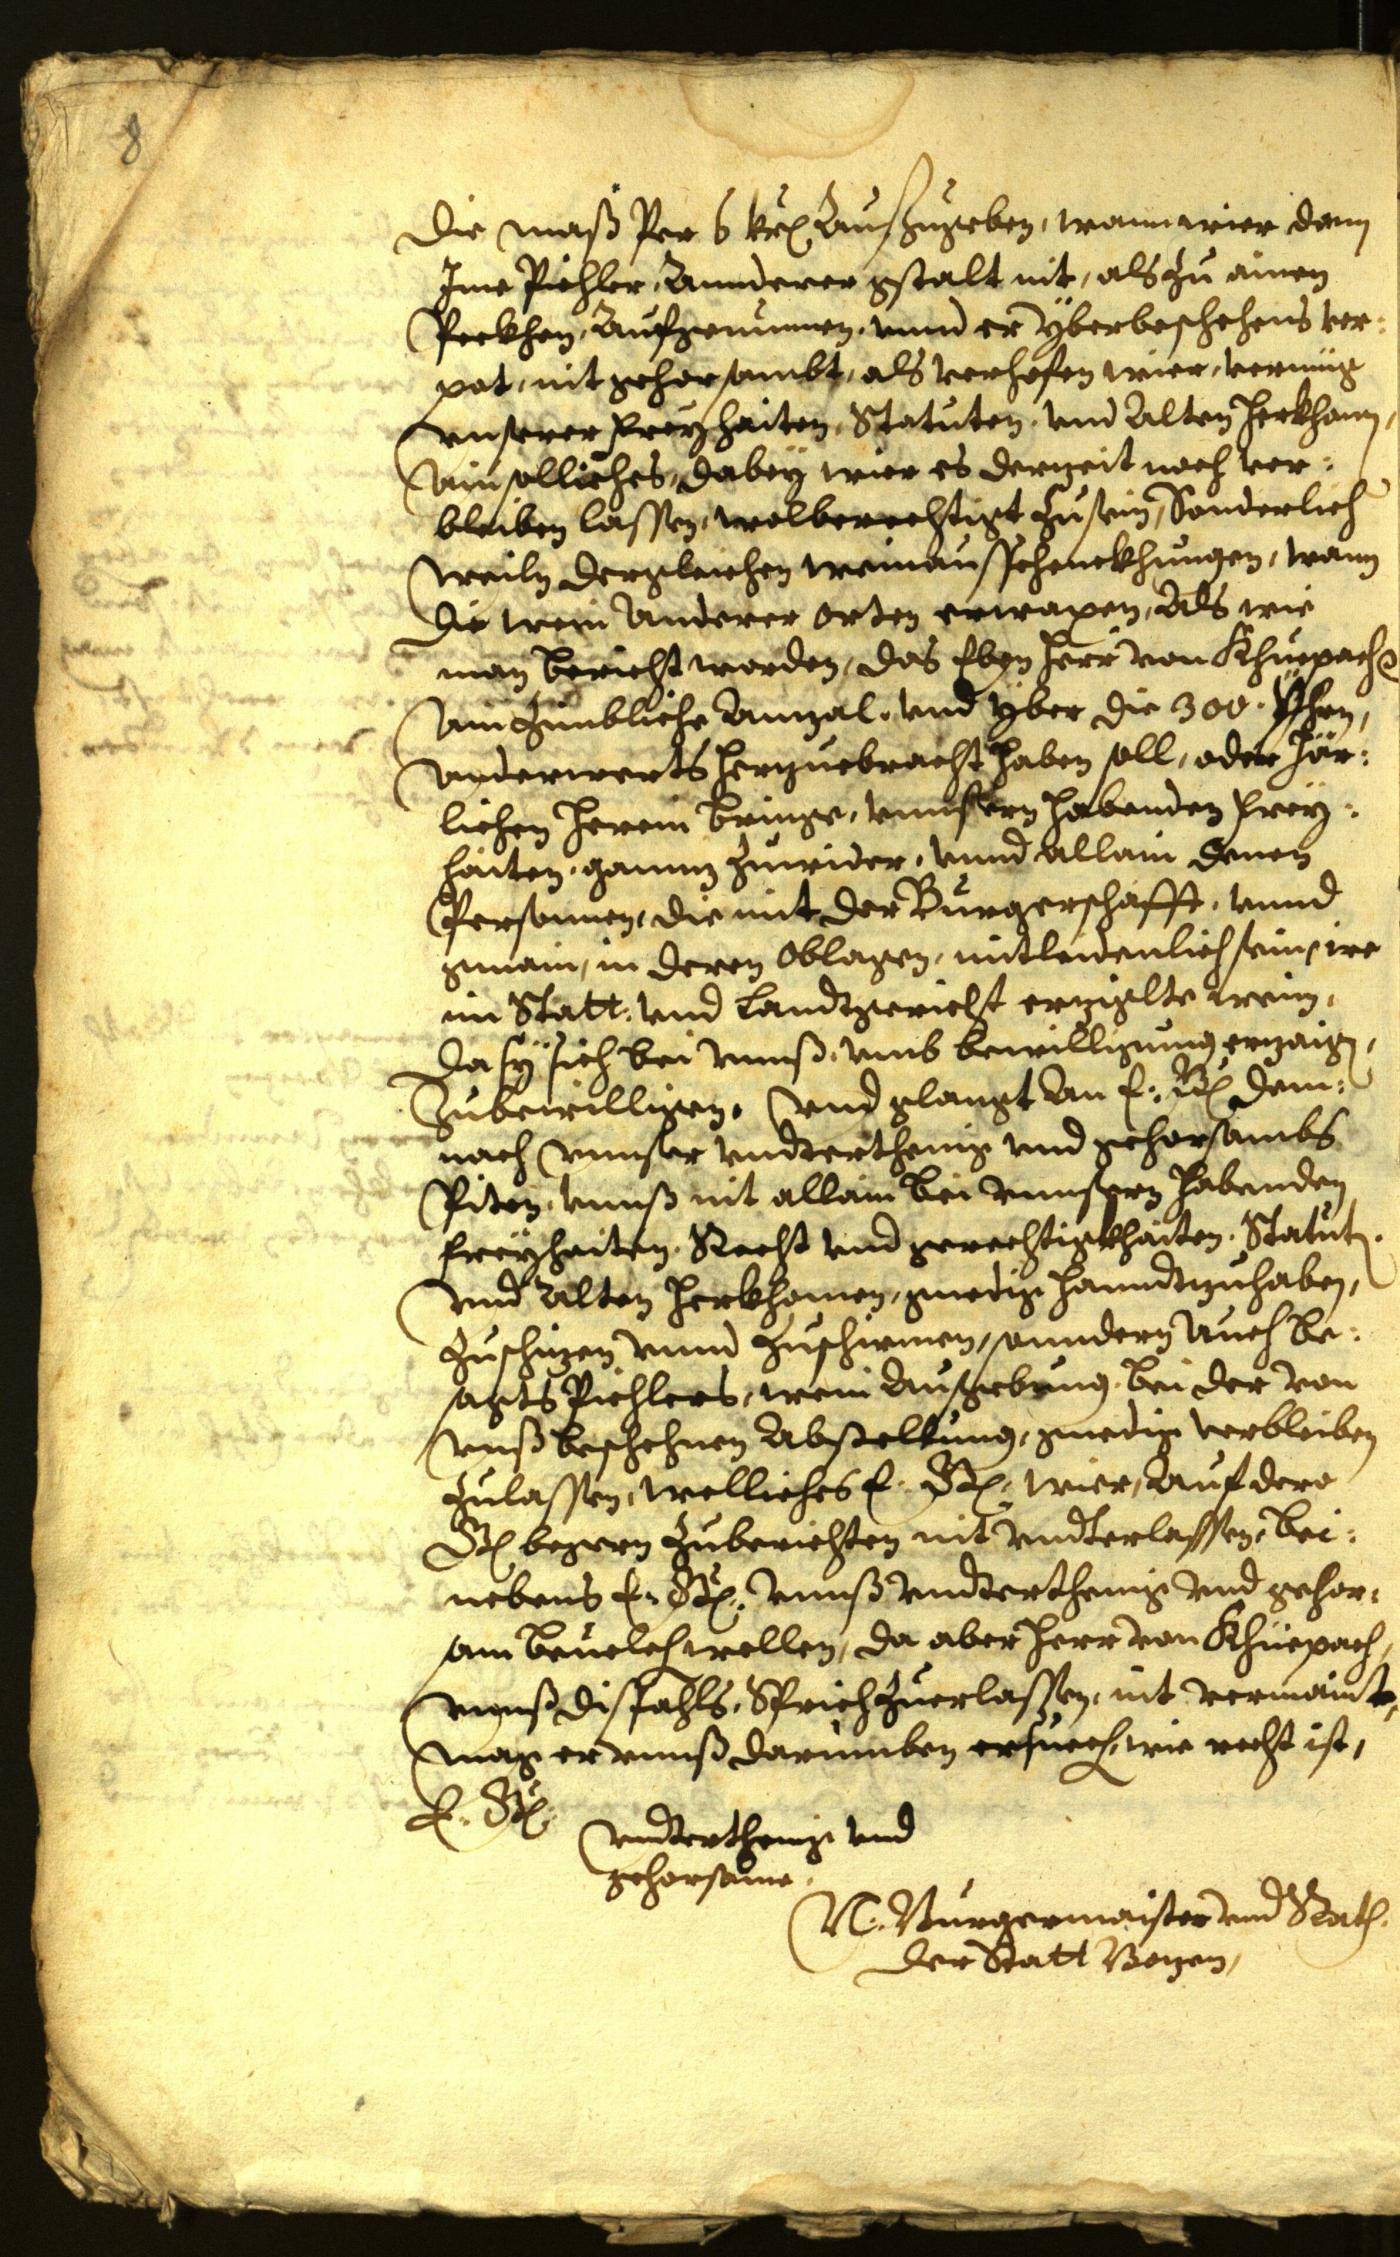 8
die mass Per 6 krz Auszugeben, wann wier dann
Ime Pichler, Annderer gstalt nit, als zu ainen
Peckhen, Aufgenumen, vnnd er yberbeschehens ver:
pot, nit gehorsambt, als verhofen wier, vermüg
vnserer freyhaiten, Statuten, vnd Alten herkhomen,
ain solliches, dabey wier es derzeit noch ver:
bleiben lassen, wolberechtigt zu sein, Sonderlich
weiln dergleichen weinausschenckhungen, wann
die wein Anderer orten erwaxen, Als wie
man bericht worden, das Eben herr von Khüepach
ain zimbliche Anzal, vnd yber die 300. Yhrn,
anderwerts herzuebracht haben soll, oder Jär:
lichen herein bringe, vnnsern habenden frey:
haiten, gannz zuwider, vnnd allain denen
Personnen, die mit der Burgerschafft, vnnd
gmain, in deren Oblagen, mitleidenlich sein, ire
im Statt: vnd Landtgericht erzigelte wein,
da sy sich bei vnnß, vmb bewilligung erzaigen,
zubewilligen. Vnd glangt An E: Gn. dem:
nach vnnser vndterthenig vnd gehorsambs
Piten, vnnß nit allain bei vnnsern habenden
freyhaiten, Recht vnd gerechtigkhaiten, Statuten
vnd Alten herkhomen, gnedig hanndtzuhaben,
zuschüzen vnnd zuschirmen, sonndern Auch be:
sagts Pichlers, wein Ausgebung, bei der von
vnß beschehnen Abstellung, gnedig verbleiben
zulassen, welliches E. Gn. wier, Auf dero
Gn. begern zuberichten nit vndterlassen, bei:
nebens E. Gn. vnnß vndterthenig vnd gehor:
sam beuelch wellen, da aber herr von Khüepach,
vnnß disfahls, Sprich zuerlassen, nit vermaint,
mag er vnnß darumben ersuech, wie recht ist,
E. Gn.
vndterthenig vnd
gehorsame.
N. Burgermaister vnd Rath
der Statt Bozen,